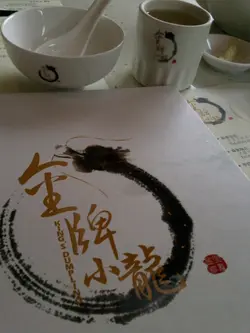 金牌小龍
KING'S DUMPLING